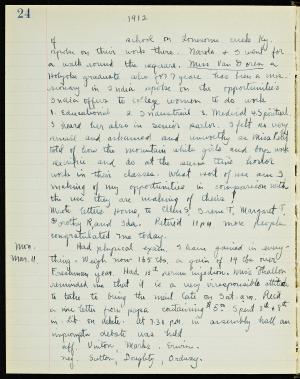 24
1912
of school on Lonesome creek Ky.
spoke on their work there. Narola & I went for
a walk round the square. Miss Van Doren a
Holyoke graduate who for 7 years has been a mis-
sionary in India spoke on the opportunities
India offers to college women to do work
1. Educational 2. Industrial 3. Medical 4. Spiritual
I heard her also in senior parlor. I felt so very
small and ashamed and unworthy as Miss
told of how the mountain white girls and boys work
and do at the same time honor
work in their classes. What sort of use am I
making of my opportunities in comparison with
the use they are making of theirs!
Wrote letters Home, to Ellen S, Irene T, Margaret T,
Dorothy R and Ida. Retired 10 P.M. more people
congratulated me today.
Mon.
Mar. 11.
Had physical exam. I have gained in every-
thing. Weigh now 165 lbs, a gain of 14 lbs over
Freshman year. Had 15th serum injection. Miss Thallon
reminded me that it is a very irresponsible attitude
to take to being the meal late on Sat. a.m. Rec'd
a nice letter from papa containing $5.00 Spent 3rd & 8th
in Lib. on debate. at 7.30 P.M. in assembly hall an
impromptu debate was held
aff. Vinton, Marks, Erwin.
neg. Sutton, Doughty, Ordway.